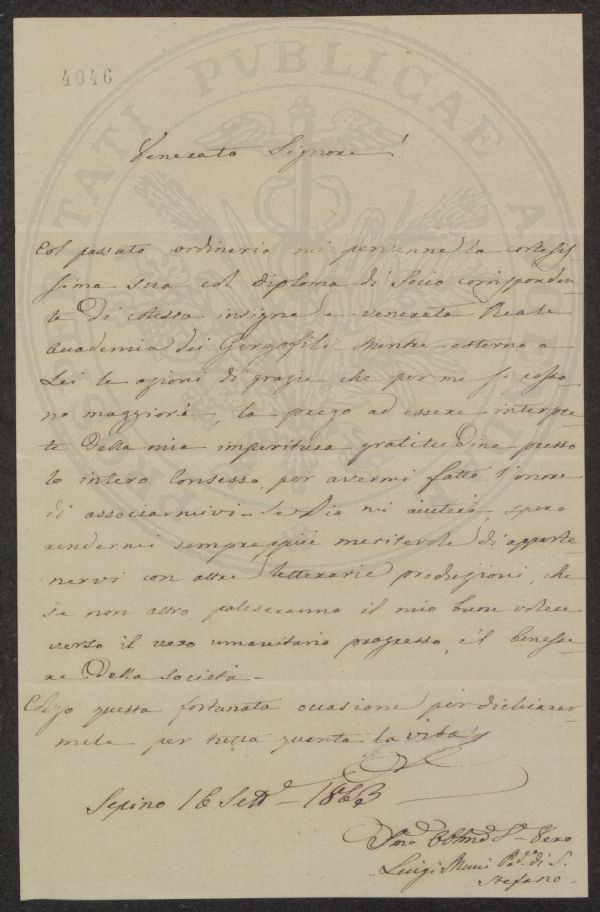 4046
PROSPERITATI PVBLICAE AVGENDAE
Venerato Signore!
Col passato ordinario mi pervenne la cortesis-
sima sua col diploma di Socio corrisponden-
te di cotesta insigne e venerata Reale
Accademia dei Gergofili. Mentre esterno a
Lei le azioni di grazie, che per me si posso-
no maggiori, la prego ad essere interpe-
te della mia imperitura gratitudine presso
lo intero Consesso, per avermi fatto l'onore
di associarmivi. Se Dio mi aiuterà, spero
rendermi sempreppiù meritevole di apparte-
nervi con altre letterarie produzioni, che
se non altro, paleseranno il mio buon volere
verso il vero umanitario progresso, e'l benesse-
re della società.
Colgo questa fortunata occasione per dichiarar-
mele per tutta quanta la vita
Sepino 16 Sett.e 1863
Obbmo Sre Vero
Luigi di S.
Stefano